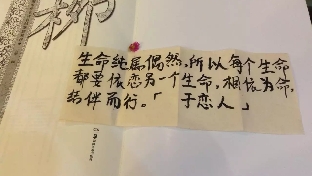 生命纯属偶然,所以每个生命
都要依恋另一个生命,相依为命,
结伴而行。「于恋人」